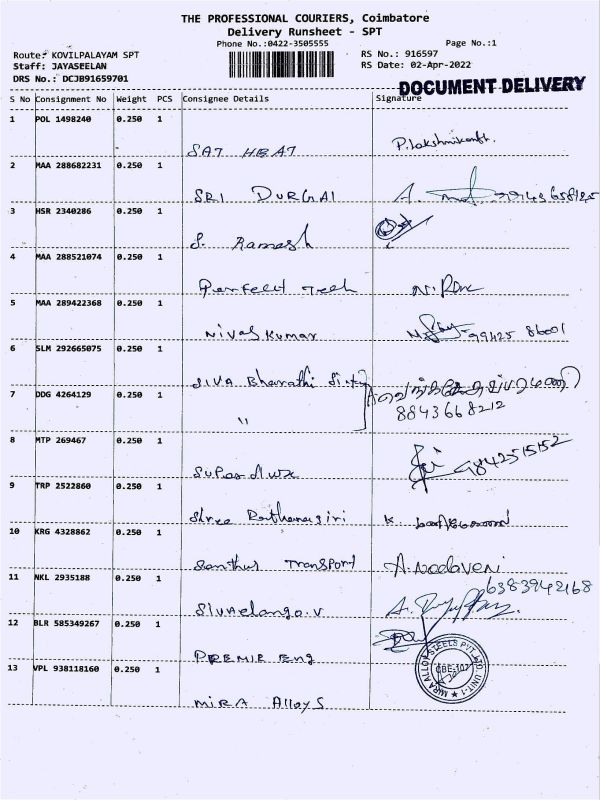 THE PROFESSIONAL COURIERS, Coimbatore
Delivery Runsheet - SPT
Phone No.:0422-3505555 Page No.:1
Route: KOVILPALAYAM SPT RS No.: 916597
Staff: JAYASEELAN RS Date: 02-Apr-2022
DRS No.: DCJB91659701
DOCUMENT DELIVERY
S No Consignment No Weight PCS Consignee Details Signature
1 POL 1498240 0.250 1
SAT HBAT P. Lakshmikanth.
2 MAA 288682231 0.250 1
SRI DURGAI A.
3 HSR 2340286 0.250 1
S. Ramesh
4 MAA 288521074 0.250 1
Perfect Tech
5 MAA 289422368 0.250 1
Nivas Kumar 99425 86001
6 SLM 292665075 0.250 1
SIVA Bharathi
7 DDG 4264129 0.250 1
" 8843668212
8 MTP 269467 0.250 1
9842515152
9 TRP 2522860 0.250 1
Shree K
10 KRG 4328862 0.250 1
Santhus Transport A.
11 NKL 2935188 0.250 1
6383942168
SIVAelango.V A.
12 BLR 585349267 0.250 1
PREMIE Eng
13 VPL 938118160 0.250 1
MIRA ALLOY STEELS PVT. LTD. UNIT-1
CBE-107
MIRA Alloys